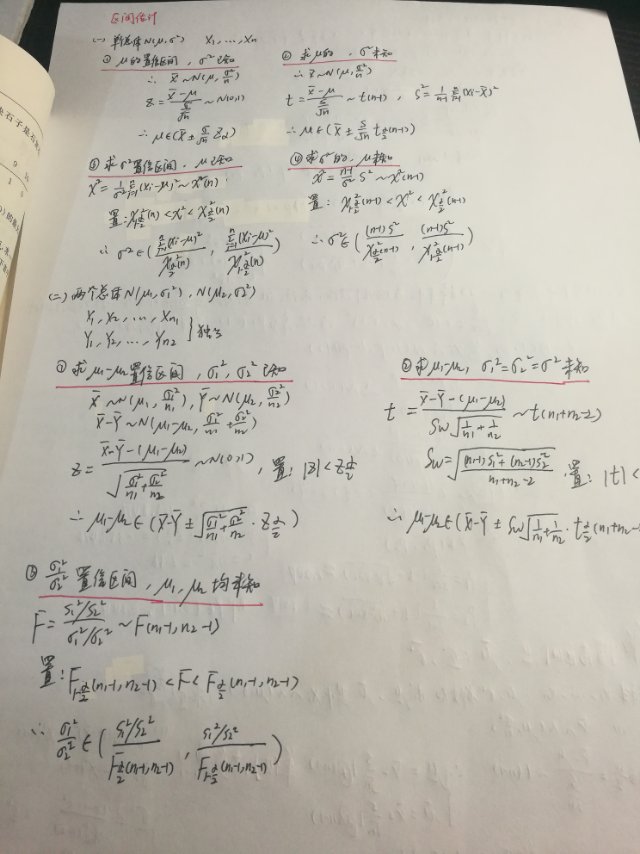 区间估计
(一) 单总体N(μ,σ²) X₁,…,Xn
① μ的置信区间,σ²已知
∴ X̄~N(μ,σ²/n)
Z=(X̄-μ)/(σ/√n) ~N(0,1)
∴ μ∈(X̄±σ/√n Zα/2)
② 求μ的,σ未知
∴ X̄~N(μ,σ²/n)
t=(X̄-μ)/(S/√n) ~t(n-1), S²=1/(n-1) Σⁿᵢ₌₁(Xi-X̄)²
∴ μ∈(X̄±S/√n tα/2(n-1))
③ 求σ²置信区间,μ已知
X²=1/σ² Σⁿᵢ₌₁(Xi-μ)²~X²(n)
置:X²1-α/2(n)<X²<X²α/2(n)
∴ σ²∈(Σⁿᵢ₌₁(Xi-μ)²/X²α/2(n), Σⁿᵢ₌₁(Xi-μ)²/X²1-α/2(n))
④ 求σ²的,μ未知
X²=(n-1)/σ² S²~X²(n-1)
置:X²1-α/2(n-1)<X²<X²α/2(n-1)
∴ σ²∈((n-1)S²/X²α/2(n-1), (n-1)S²/X²1-α/2(n-1))
(二) 两个总体N(μ₁,σ₁²),N(μ₂,σ₂²)
Y₁,Y₂,…,Xn₁
Y₁,Y₂,…,Yn₂ } 独立
① 求μ₁-μ₂置信区间,σ₁²,σ₂²已知
X̄~N(μ₁,σ₁²/n₁),Ȳ~N(μ₂,σ₂²/n₂)
X̄-Ȳ~N(μ₁-μ₂,σ₁²/n₁+σ₂²/n₂)
Z=(X̄-Ȳ-(μ₁-μ₂))/√(σ₁²/n₁+σ₂²/n₂) ~N(0,1),置:|Z|<Zα/2
∴ μ₁-μ₂∈(X̄-Ȳ±√(σ₁²/n₁+σ₂²/n₂)·Zα/2)
② 求μ₁-μ₂,σ₁²=σ₂²=σ²未知
t=(X̄-Ȳ-(μ₁-μ₂))/(Sw√(1/n₁+1/n₂)) ~t(n₁+n₂-2)
Sw=√(((n₁-1)S₁²+(n₂-1)S₂²)/(n₁+n₂-2)) 置:|t|<
∴ μ₁-μ₂∈(X̄-Ȳ±Sw√(1/n₁+1/n₂)·tα/2(n₁+n₂-
③ σ₁²/σ₂² 置信区间,μ₁,μ₂均未知
F=(S₁²/S₂²)/(σ₁²/σ₂²) ~F(n₁-1,n₂-1)
置:F1-α/2(n₁-1,n₂-1)<F<Fα/2(n₁-1,n₂-1)
∴ σ₁²/σ₂²∈((S₁²/S₂²)/Fα/2(n₁-1,n₂-1), (S₁²/S₂²)/F1-α/2(n₁-1,n₂-1))